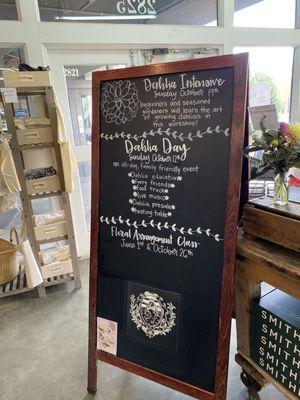 2282
2821
Dahlia Intensive
Sunday October 19th
beginners and seasoned
gardeners will learn the art
of growing dahlias in
this workshop!
Dahlia Day
Sunday October 12th
an all-day, family friendly event
*Dahlia education*
*Furry friends*
*food truck*
*live music*
*Dahlia presale*
*tasting table*
Floral Arrangement Class
June 1st & October 26th
SMITH
SMITH
SMITH
SMITH
SMITH